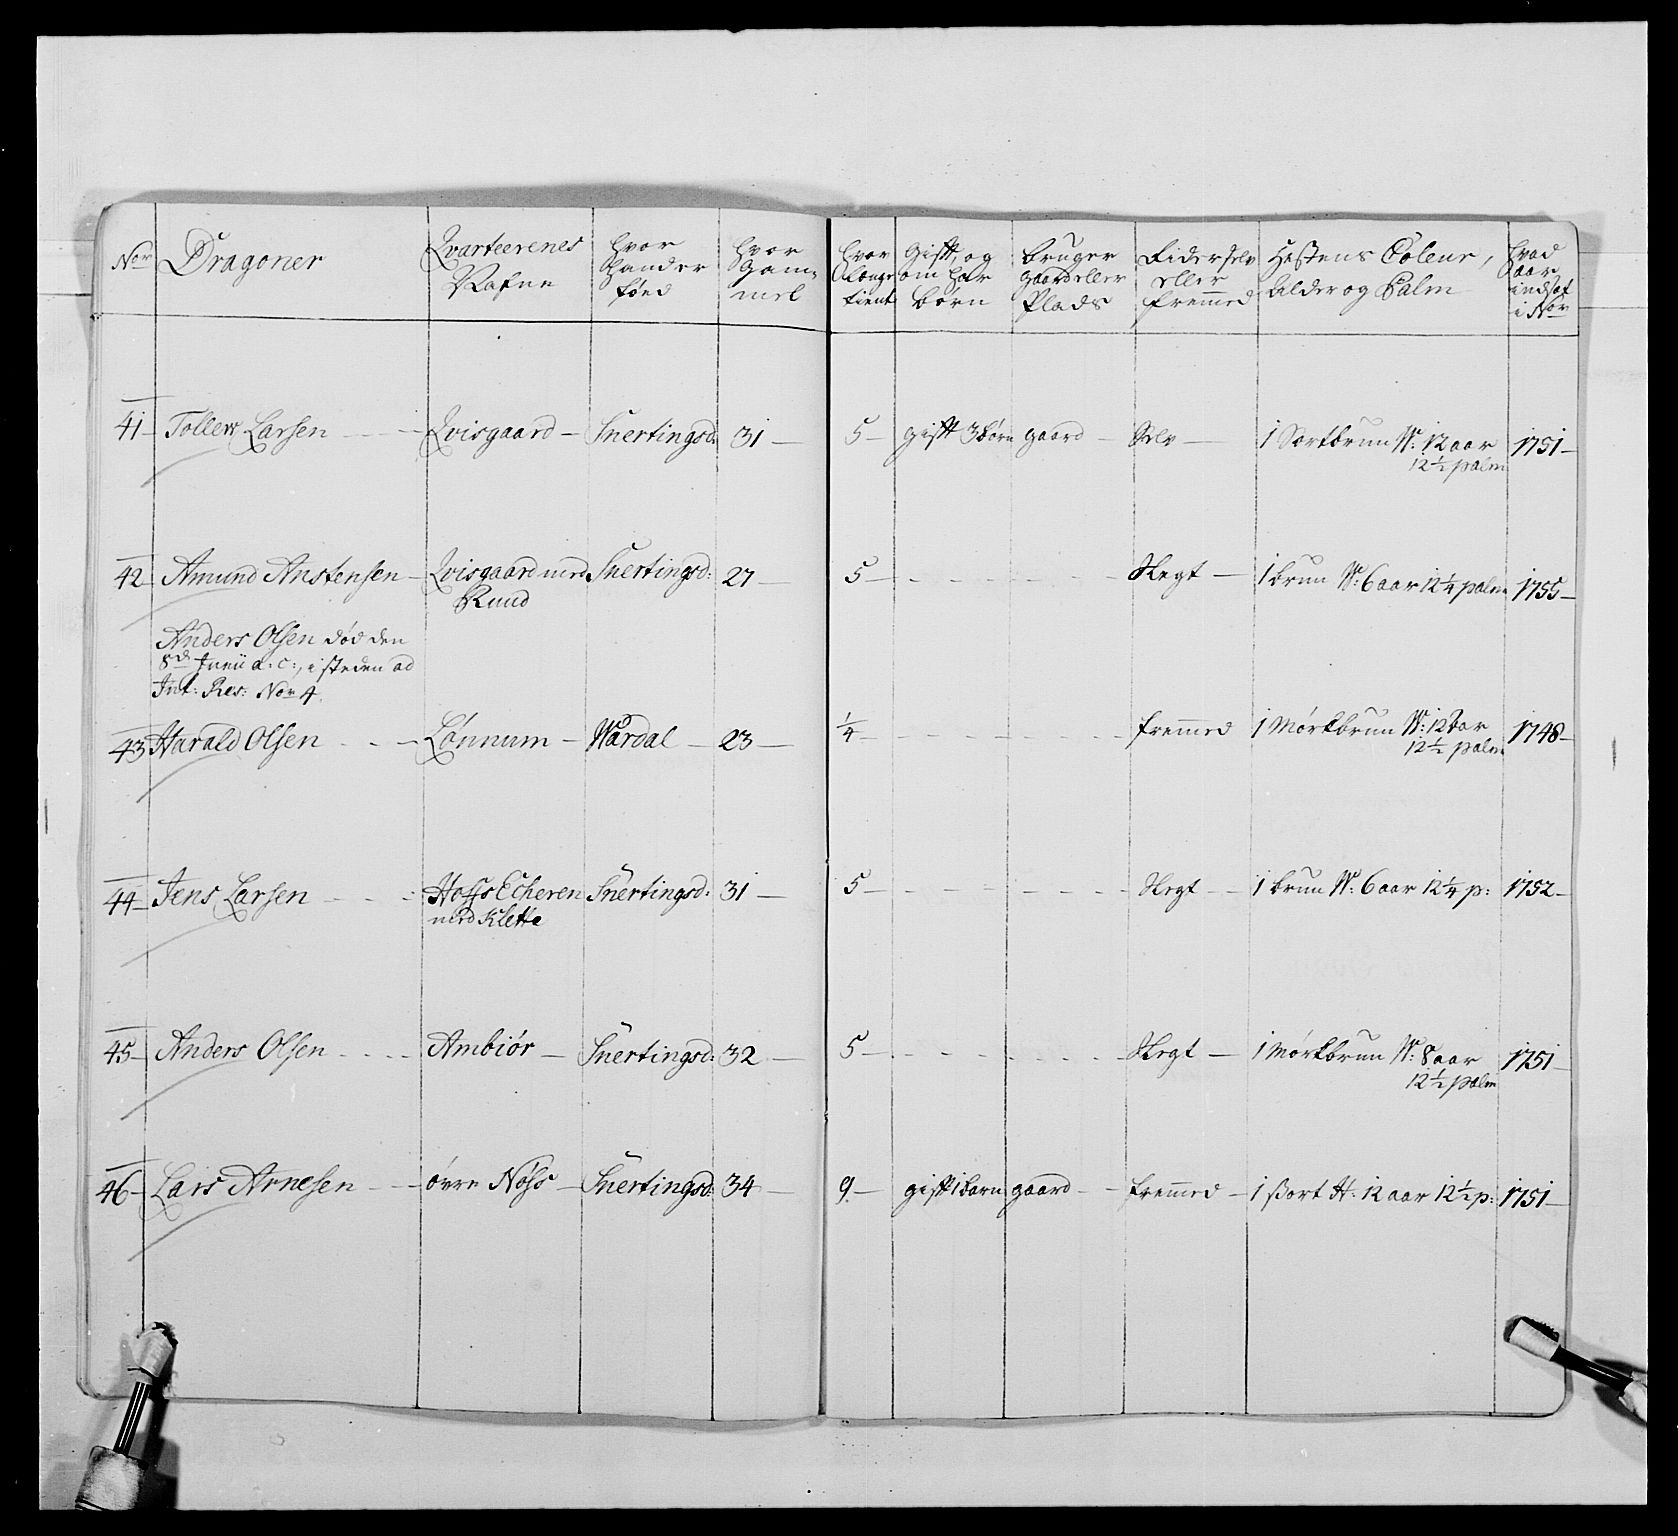 Nor Dragoner Qvarteerenes Nafne hvor hander föed hvor Gammel hvor Længe tient gift, og om har börn bruger gaard eller Plads Rider selv eller fremmed Hestens Coleur, alder og Palm hvad aar indsat i Nor
41 Tollew Larsen Qvisgaard Snertingsd: 31 5 gift 3 börn gaard Selv 1 Sortbrun W: 12 aar 12½ palm 1751
42 Amund Anstensen Qvisgaard med Ruud Snertingsd: 27 5 Slegt 1 brun W: 6 aar 12¼ palm 1755
Anders Olsen död den
8de Junii a: c:, i steden ad
Int: Res: Nor 4
43 Harald Olsen Lönnum Wardal 23 ¼ fremmed 1 Mörkbrun W: 12 aar 12½ palm 1748
44 Jens Larsen Hoffs Echeren med Klette Snertingsd: 31 5 Slegt 1 brun W: 6 aar 12¼ p: 1752
45 Anders Olsen Ambiör Snertingsd: 32 5 Slegt 1 Mörkbrun W: 8 aar 12½ palm 1751
46 Lars Arnesen övre Nöss Snertingsd: 34 9 gift 1 barn gaard fremmed 1 Sort H: 12 aar 12½ p: 1751